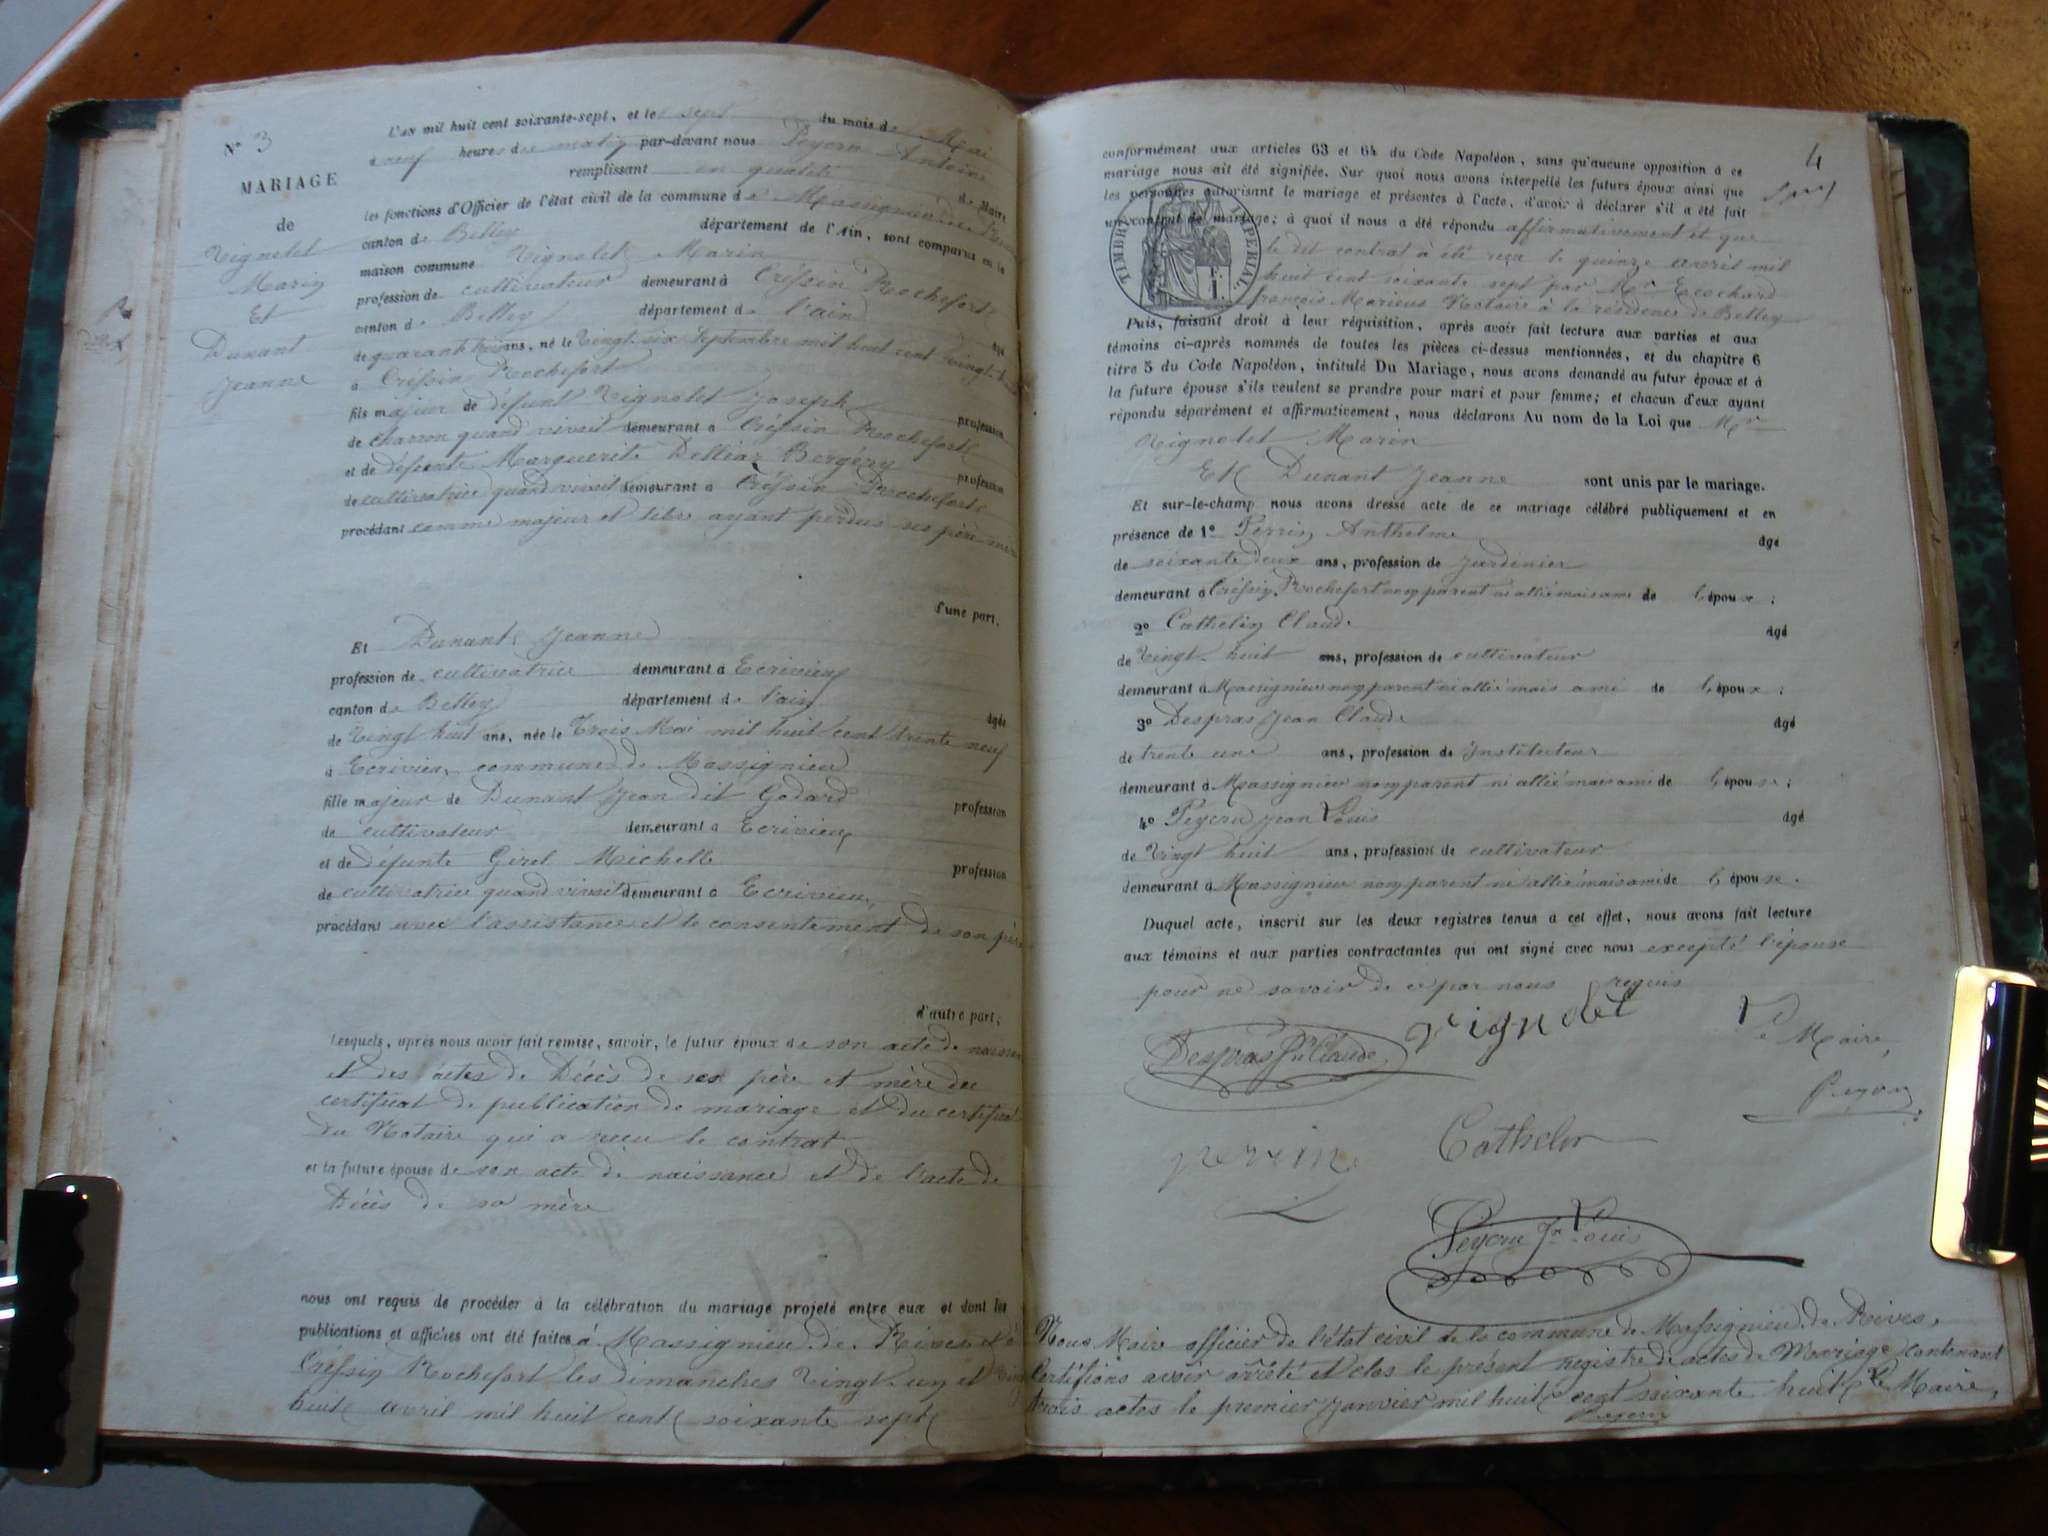 N° 3
MARIAGE
de
Vignolet
Marin
Et
Dunant
Jeanne
L'an mil huit cent soixante-sept, et le sept du mois de Mai
neuf heures du matin par-devant nous Peycru Antoine
remplissant en qualité de Maire
les fonctions d'Officier de l'état civil de la commune de Massignieu de Rives
canton de Belley département de l'Ain, sont comparus en la
maison commune Vignolet Marin
profession de cultivateur demeurant à Créssin Rochefort
canton de Belley département de l'ain âgé
de quarante trois ans, né le Vingt six Septembre mil huit cent vingt
à Créssin Rochefort
fils majeur de defunt Vignolet Joseph profession
de charron quand vivait demeurant à Créssin Rochefort
et de défunte Marguerite Delliaz Bergéry profession
de cultivatrice quand vivait demeurant à Créssin Rochefort
procédant comme majeur et libre ayant perdus ses père mère
d'une part.
Et Dunant Jeanne
profession de cultivatrice demeurant à Ecrivieu
canton de Belley département de l'ain âgée
de Vingt huit ans, née le Trois Mai mil huit cent trente neuf
à Ecrivieu commune de Massignieu
fille majeur de Dunant Jean dit Godard profession
de cultivateur demeurant à Ecrivieu
et de défunte Girel Michelle profession
de cultivatrice quand vivait demeurant à Ecrivieu,
procédant avec l'assistance et le consentement de son père
d'autre part;
Lesquels, après nous avoir fait remise, savoir, le futur époux de son acte de naissance
et des actes de Décès de ses père et mère du
certificat de publication de mariage et du certificat
du Notaire qui a reçu le contrat
et la future épouse de son acte de naissance et de l'acte de
Décès de sa mère
nous ont requis de procéder à la célébration du mariage projeté entre eux et dont les
publications et affiches ont été faites à Massignieu de Rives et à
Créssin Rochefort les dimanches Vingt un et Vingt
huit avril mil huit cent soixante sept
4
conformément aux articles 63 et 64 du Code Napoléon, sans qu'aucune opposition à ce
mariage nous ait été signifiée. Sur quoi nous avons interpellé les futurs époux ainsi que
les personnes autorisant le mariage et présentes à l'acte, d'avoir à déclarer s'il a été fait
un contrat de mariage; à quoi il nous a été répondu affirmativement et que
le dit contrat à été reçu le quinze avril mil
huit cent soixante sept par Mr Ecochard
françois Marieus Notaire à la résidence de Belley
TIMBRE IMPERIAL
Puis, faisant droit à leur réquisition, après avoir fait lecture aux parties et aux
témoins ci-après nommés de toutes les pièces ci-dessus mentionnées, et du chapitre 6
titre 5 du Code Napoléon, intitulé Du Mariage, nous avons demandé au futur époux et à
la future épouse s'ils veulent se prendre pour mari et pour femme; et chacun d'eux ayant
répondu séparément et affirmativement, nous déclarons Au nom de la Loi que Mr
Vignolet Marin
Et Dunant Jeanne sont unis par le mariage.
Et sur-le-champ nous avons dressé acte de ce mariage célébré publiquement et en
présence de 1° Perrin Anthelme âgé
de soixante deux ans, profession de Jardinier
demeurant à Créssin Rochefort non parent ni allié mais ami de l'époux;
2° Cathelin Claude âgé
de Vingt huit ans, profession de cultivateur
demeurant à Massignieu non parent ni allié mais ami de l'époux;
3° Despras Jean Claude âgé
de trente une ans, profession de Instituteur
demeurant à Massignieu non parent ni allié mais ami de l'épouse;
4° Peycru Jean Louis âgé
de Vingt huit ans, profession de cultivateur
demeurant à Massignieu non parent ni allié mais ami de l'épouse.
Duquel acte, inscrit sur les deux registres tenus à cet effet, nous avons fait lecture
aux témoins et aux parties contractantes qui ont signé avec nous excepté l'épouse
pour ne savoir de ce par nous requis
Despras Jn Claude vignolet Le Maire,
Peycru
perrin Cathelin
Peycru Jn Louis
Nous Maire officier de l'état civil de la commune de Massignieu de Rives,
Certifions avoir arrêté et clos le présent registre de actes de Mariage contenant
trois actes le premier Janvier mil huit cent soixante huit Le Maire,
Peycru